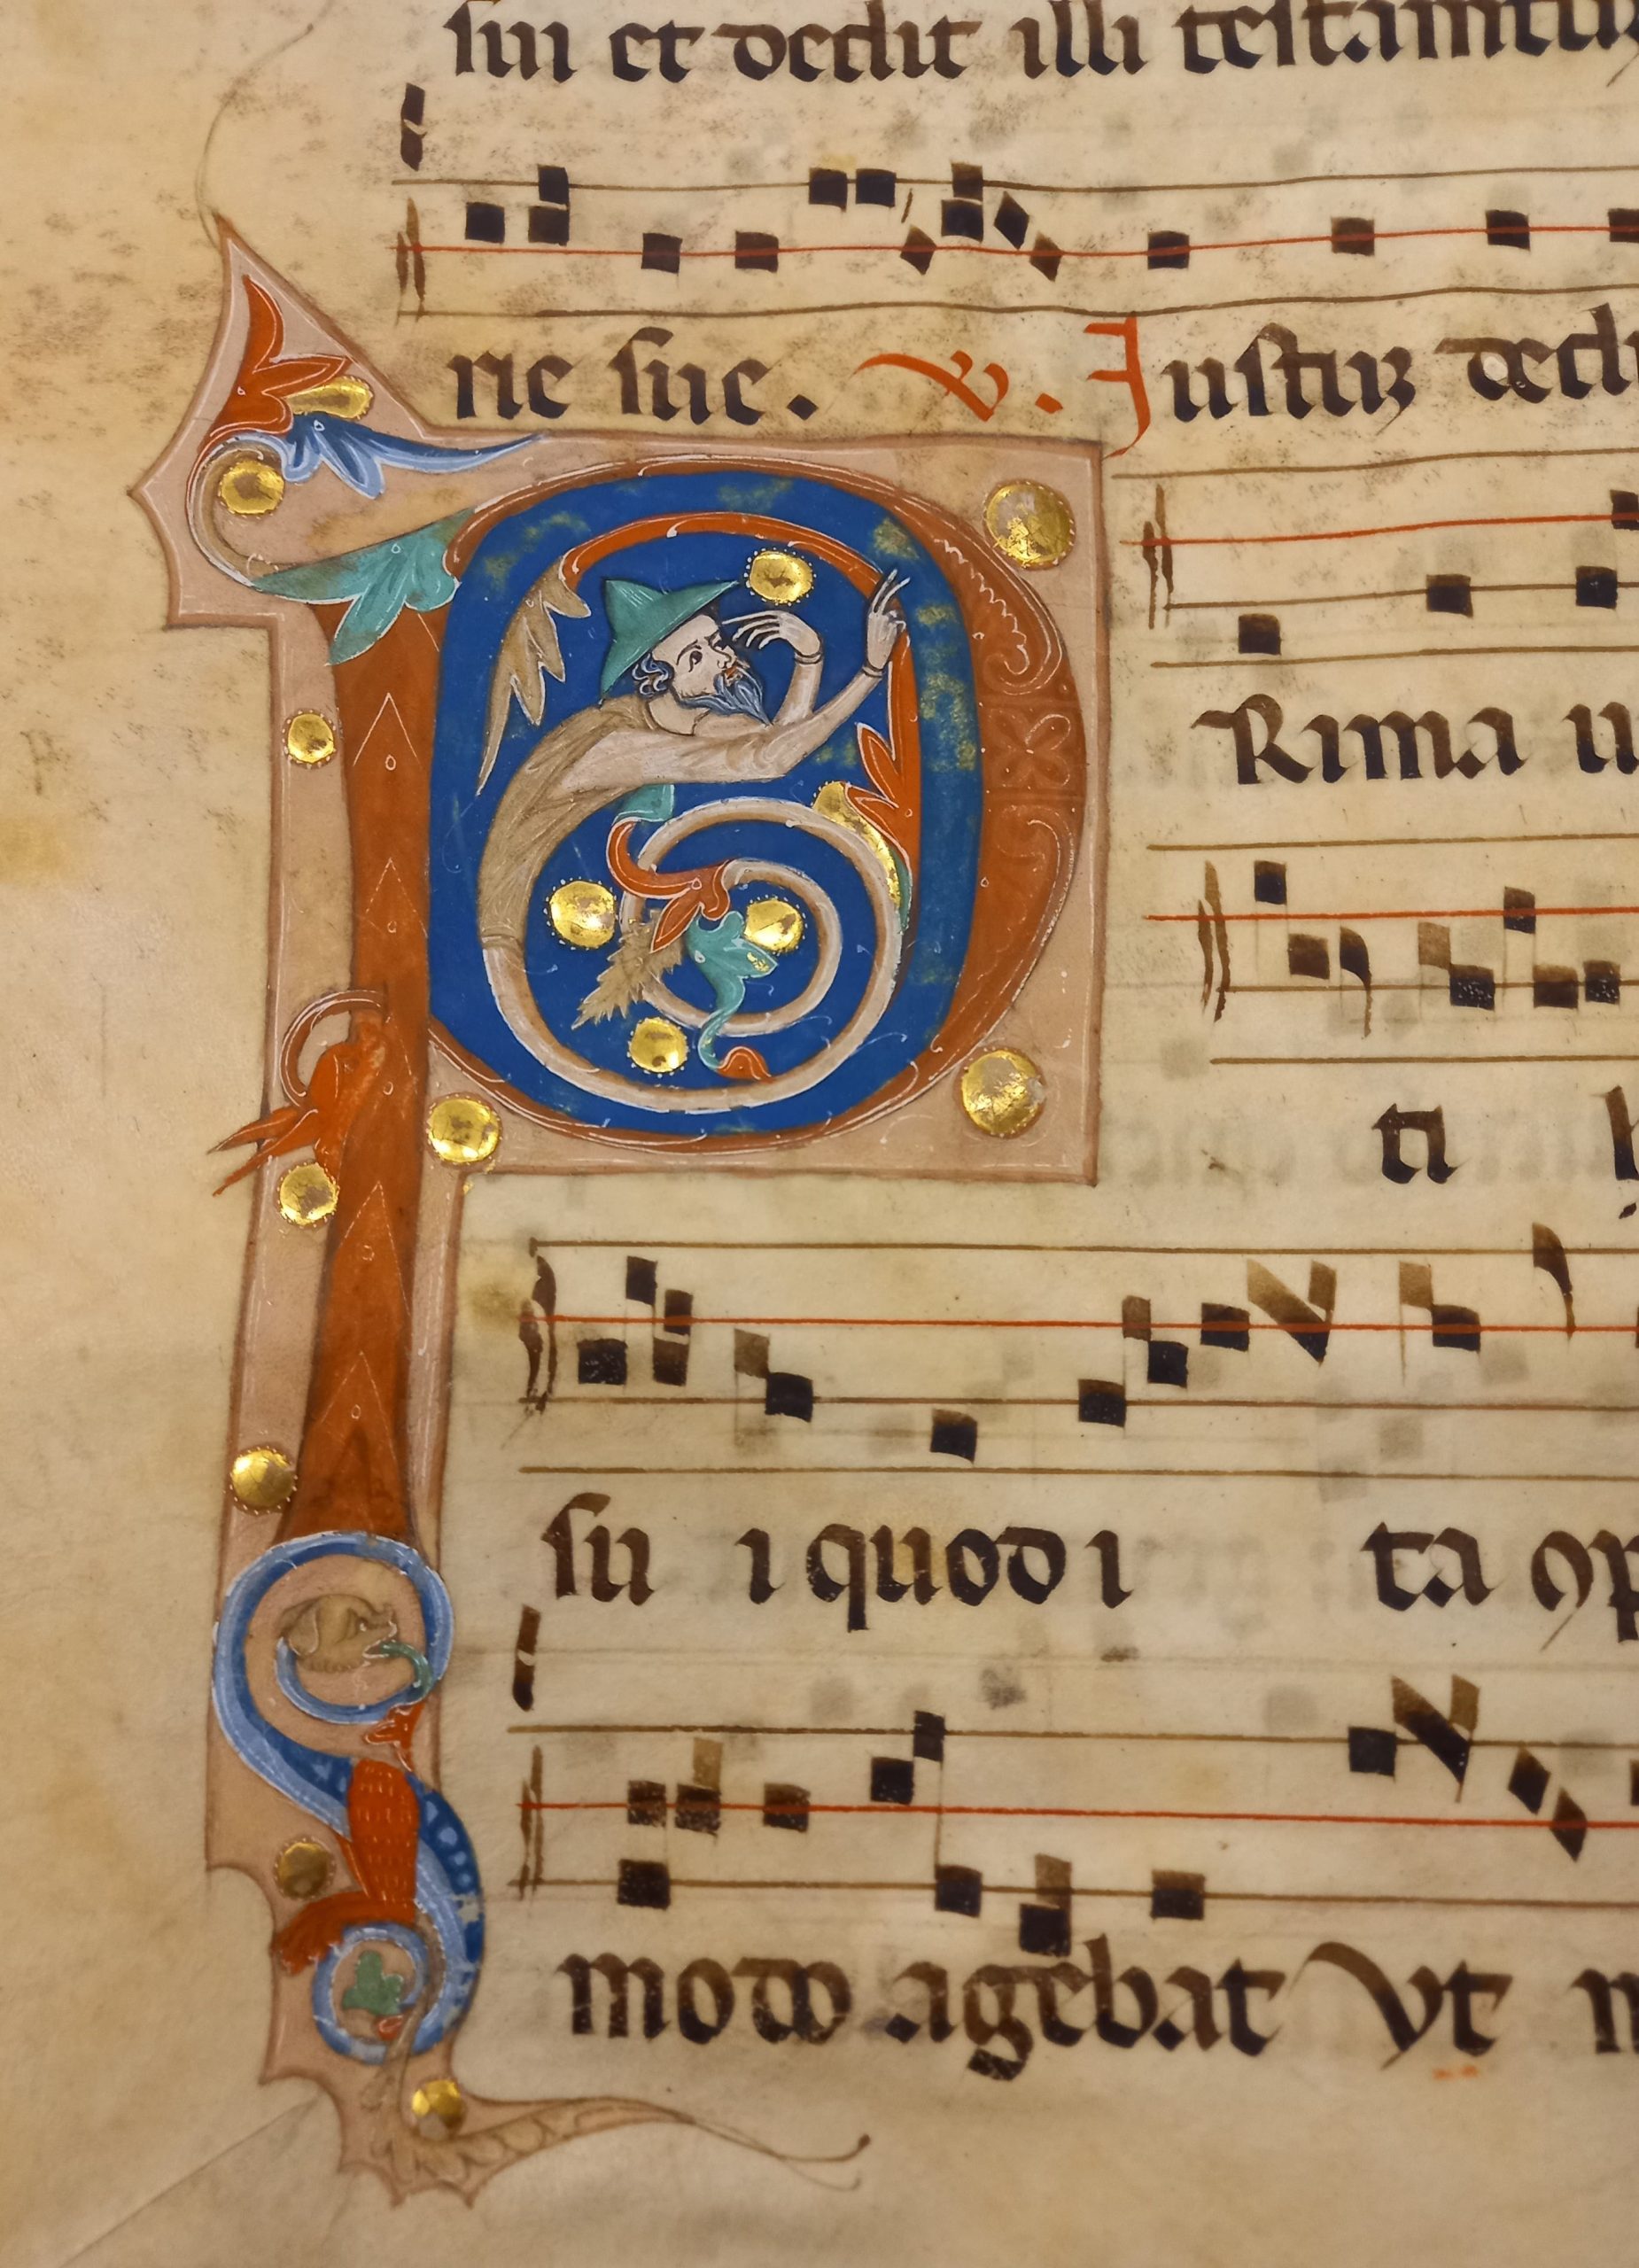 sui et dedit illi testamentu
rie sue. ℣. Justuꝫ dedu
PRima ui
ti h
su i quod i ta ꝯp
modo agebat Vt m